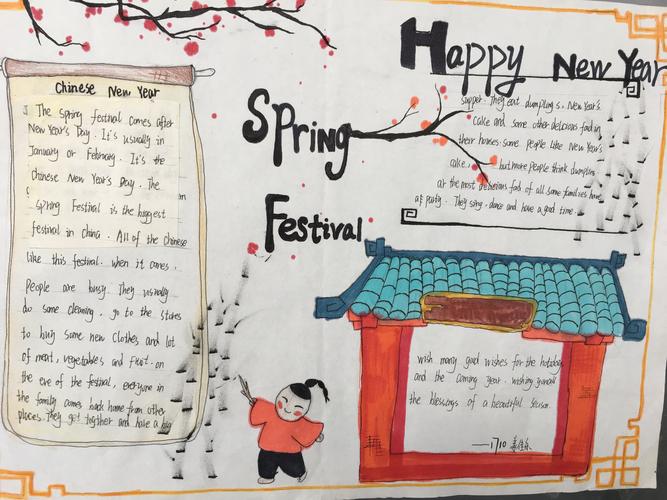 Happy New Year
Spring
Festival
Chinese New Year
The Spring festival comes after
New Year's Day. It's usually in
January or February. It's the
Chinese New Year's Day. The
Spring Festival is the biggest
festival in china. All of the Chinese
like this festival. when it comes,
People are busy. They usually
do some cleaning, go to the stores
to buy some new clothes and lot
of meat, vegetables and fruit. on
the eve of the festival, everyone in
the family comes back home from other
places. They get together and have a big
supper. They eat dumplings, New Year's
Cake and some other delicious food in
their homes. some people like New Year's
cake, but more people think dumplings
are the most delicious food of all some families have
a party. They sing, dance and have a good time.
wish many good wishes for the holidays
and the coming year. wishing you all
the blessings of a beautiful season.
——1710